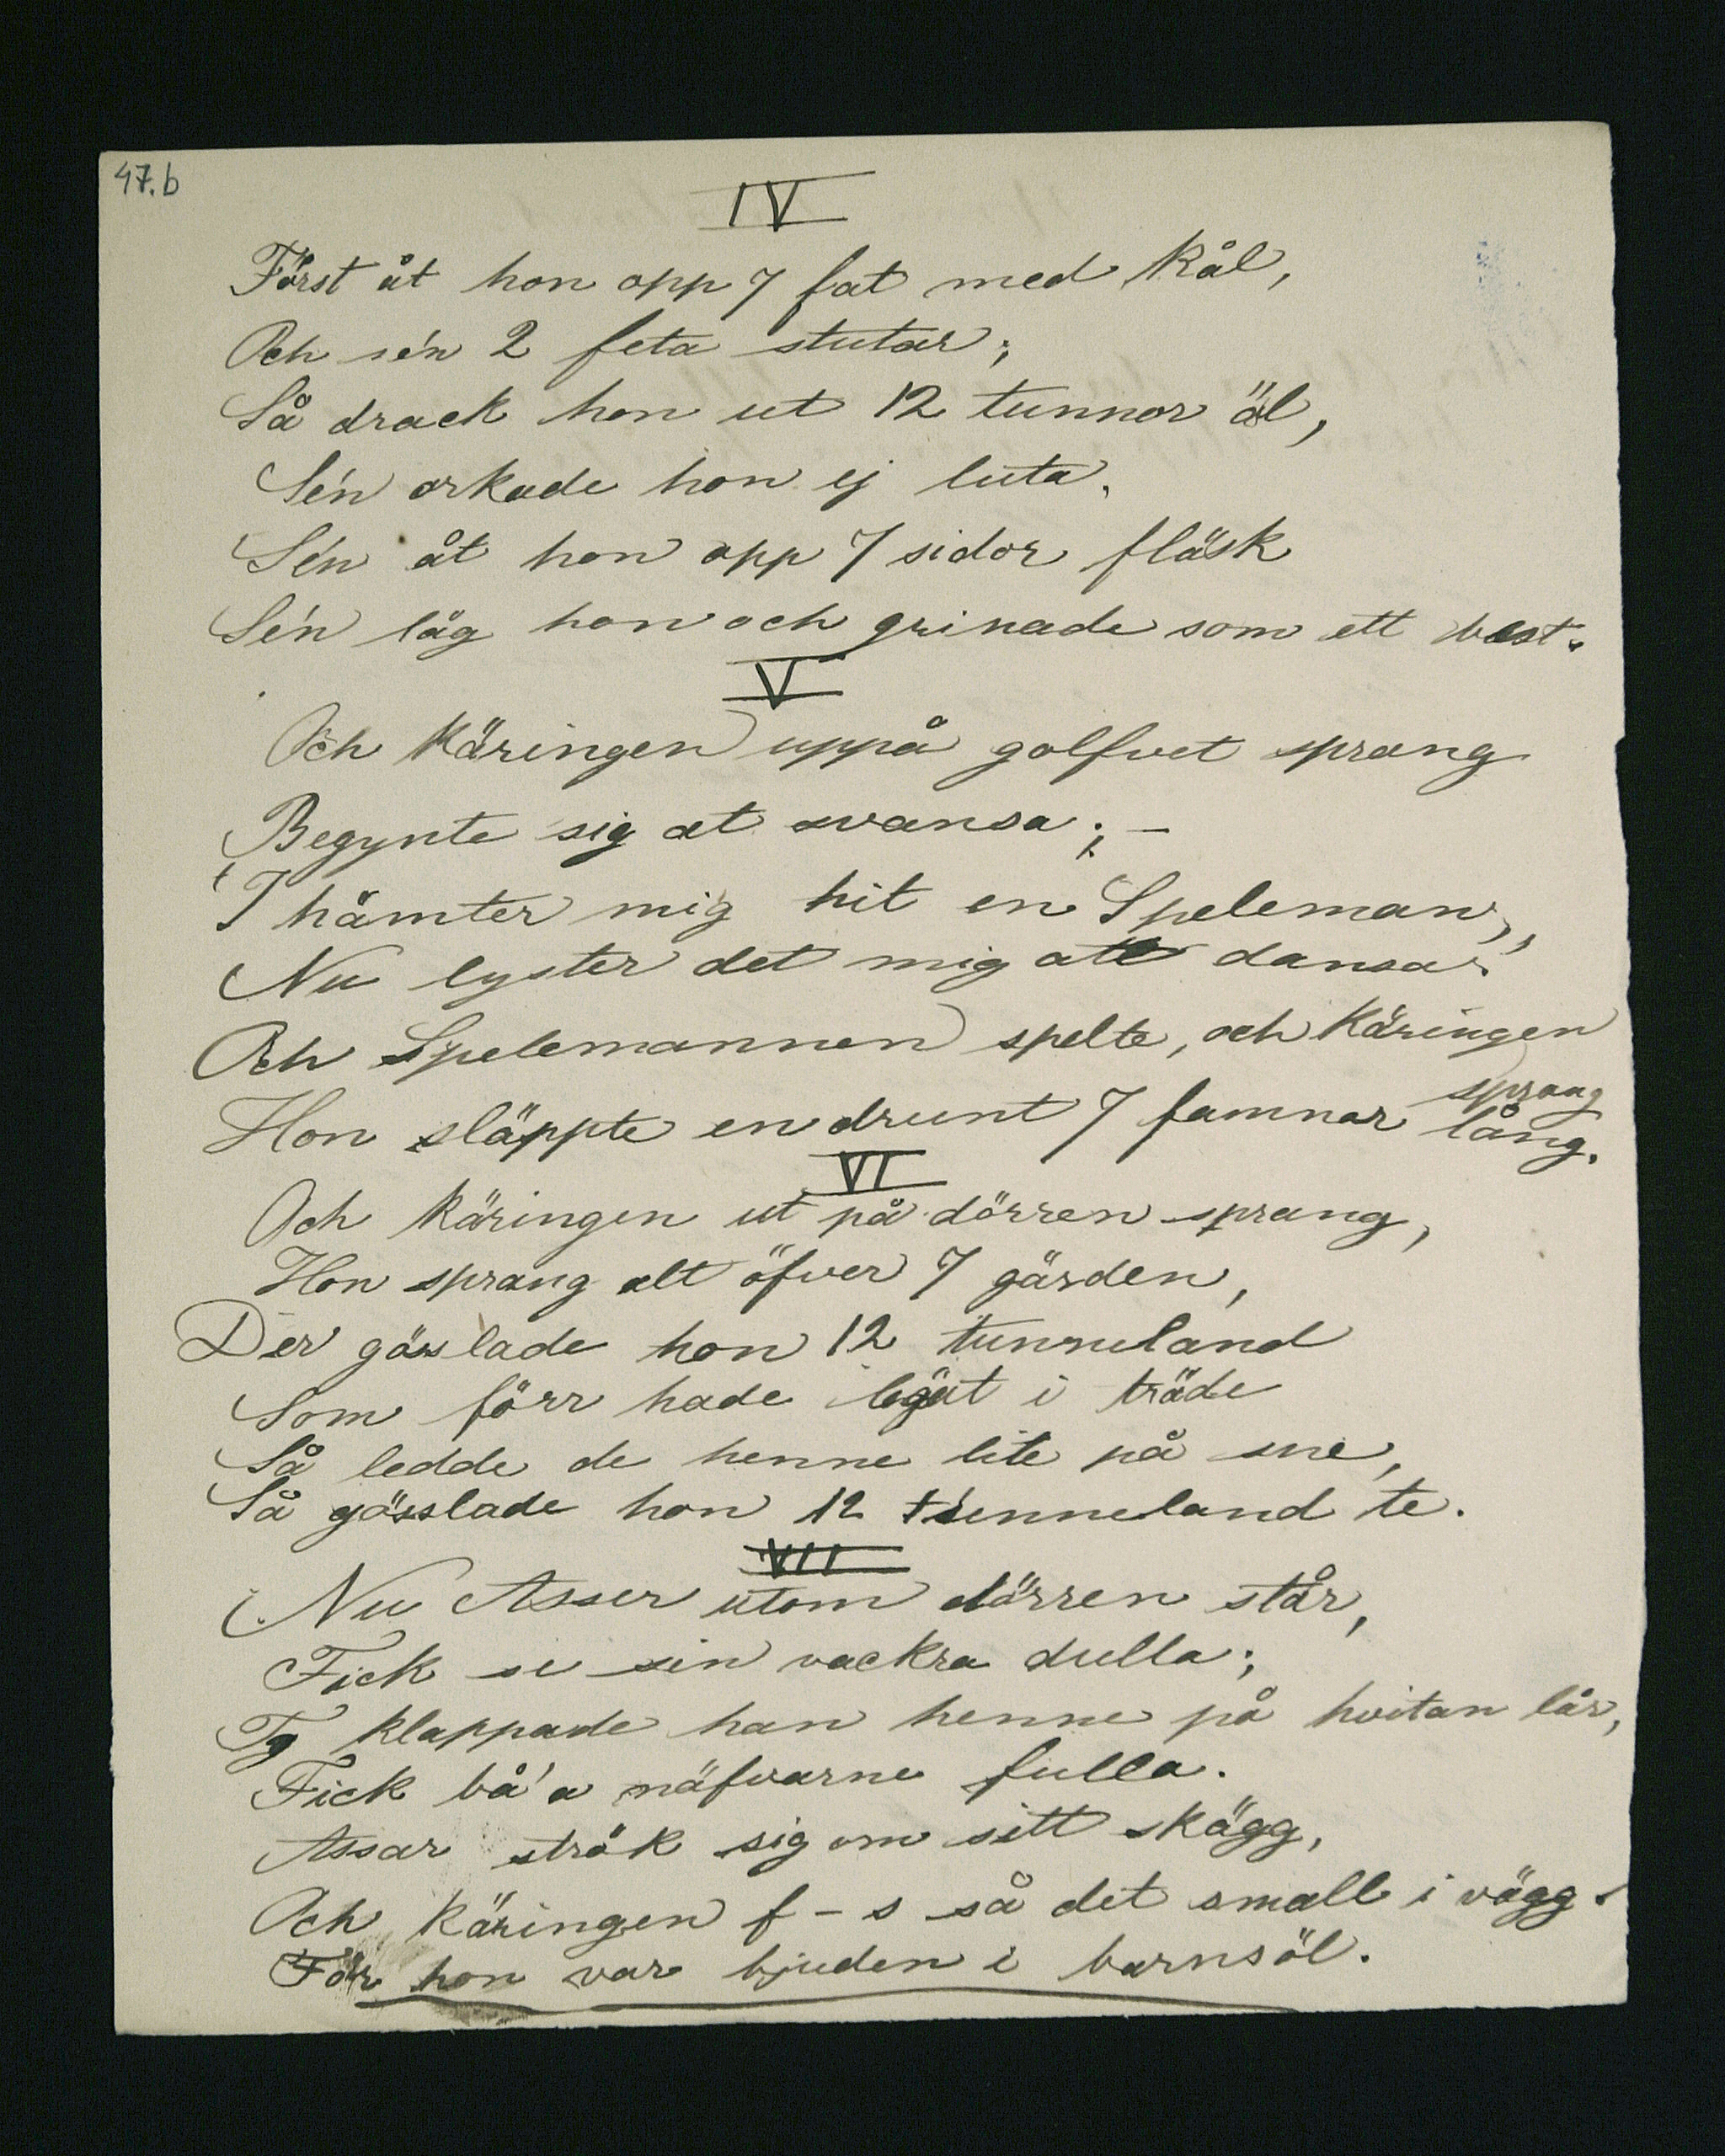 47.b
IV
Först åt hon opp 7 fat med kål,
Och se'n 2 feta stutar;
Så drack hon ut 12 tunnor äl,
Se'n orkade hon ej luta.
Se'n åt hon opp 7 sidor fläsk
Se'n låg hon och grinade som ett best.
V
Och Käringen uppå golfvet sprang
Begynte sig at svansa; –
'I hämter mig hit en Speleman,
Nu lyster det mig att dansa!'
Och Spelemannen spelte, och Käringen
sprang
Hon släppte en drunt 7 famnar lång.
VI
Och Käringen ut på dörren sprang,
Hon sprang alt öfver 7 gärden,
Der gösslade hon 12 tunneland
Som förr hade legat i träde
Så ledde de henne lite på sne,
Så gösslade hon 12 tunneland te.
VII
Nu Asser utom dörren står,
Fick se sin vackra dulla;
Tg klappade han henne på hvitan lår,
Fick bå'a näfvarne fulla.
Assar strök sig om sitt skägg,
Och Käringen f–s så det small i vägg.
För hon var bjuden i barnsöl.